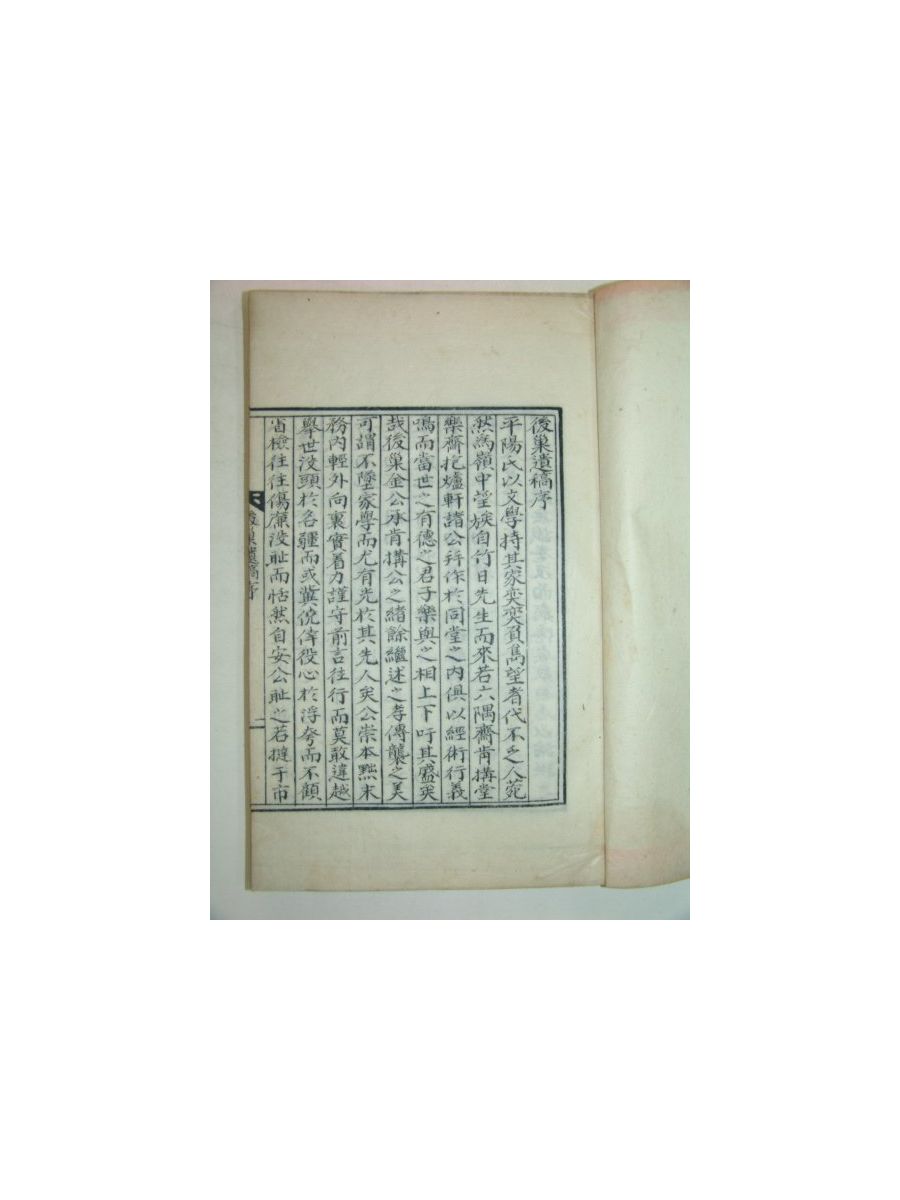 後巢遺稿序
平陽氏以文學持其家奕奕負雋望者代不乏人菀
然爲嶺中望族自竹日先生而來若六隅齋肯搆堂
樂齋抱爐軒諸公幷作於同堂之內俱以經術行義
鳴而當世之有德之君子樂與之相上下吁其盛矣
哉後巢金公承肯搆公之緖餘繼述之孝傳襲之美
可謂不墜家學而尤有光於其先人矣公崇本黜末
務內輕外向裏實着力謹守前言往行而莫敢違越
擧世沒頭於名疆而或冀僥倖役心於浮夸而不顧
省檢往往傷廉沒恥而恬然自安公恥之若撻于市
後巢遺稿序
一